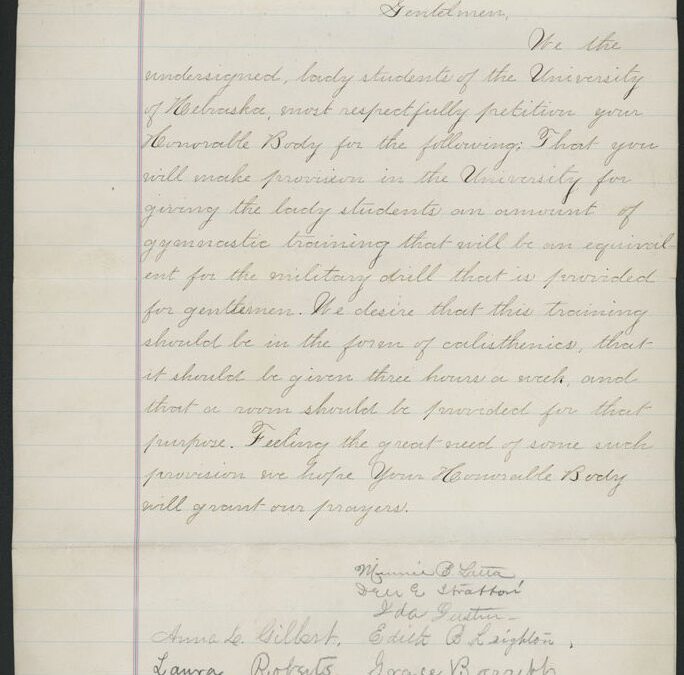 Gentelmen,
We the
undersigned, lady students of the University
of Nebraska, most respectfully petition your
Honorable Body for the following: That you
will make provision in the University for
giving the lady students an amount of
gymnastic training that will be an equival-
ent for the military drill that is provided
for gentlemen. We desire that this training
should be in the form of calisthenics, that
it should be given three hours a week, and
that a room should be provided for that
purpose. Feeling the great need of some such
provision we hope Your Honorable Body
will grant our prayers.
Minnie B. Latta
Dell E Stratton
Ida
Anna L. Gilbert. Edith B Leighton.
Laura Roberts Grace